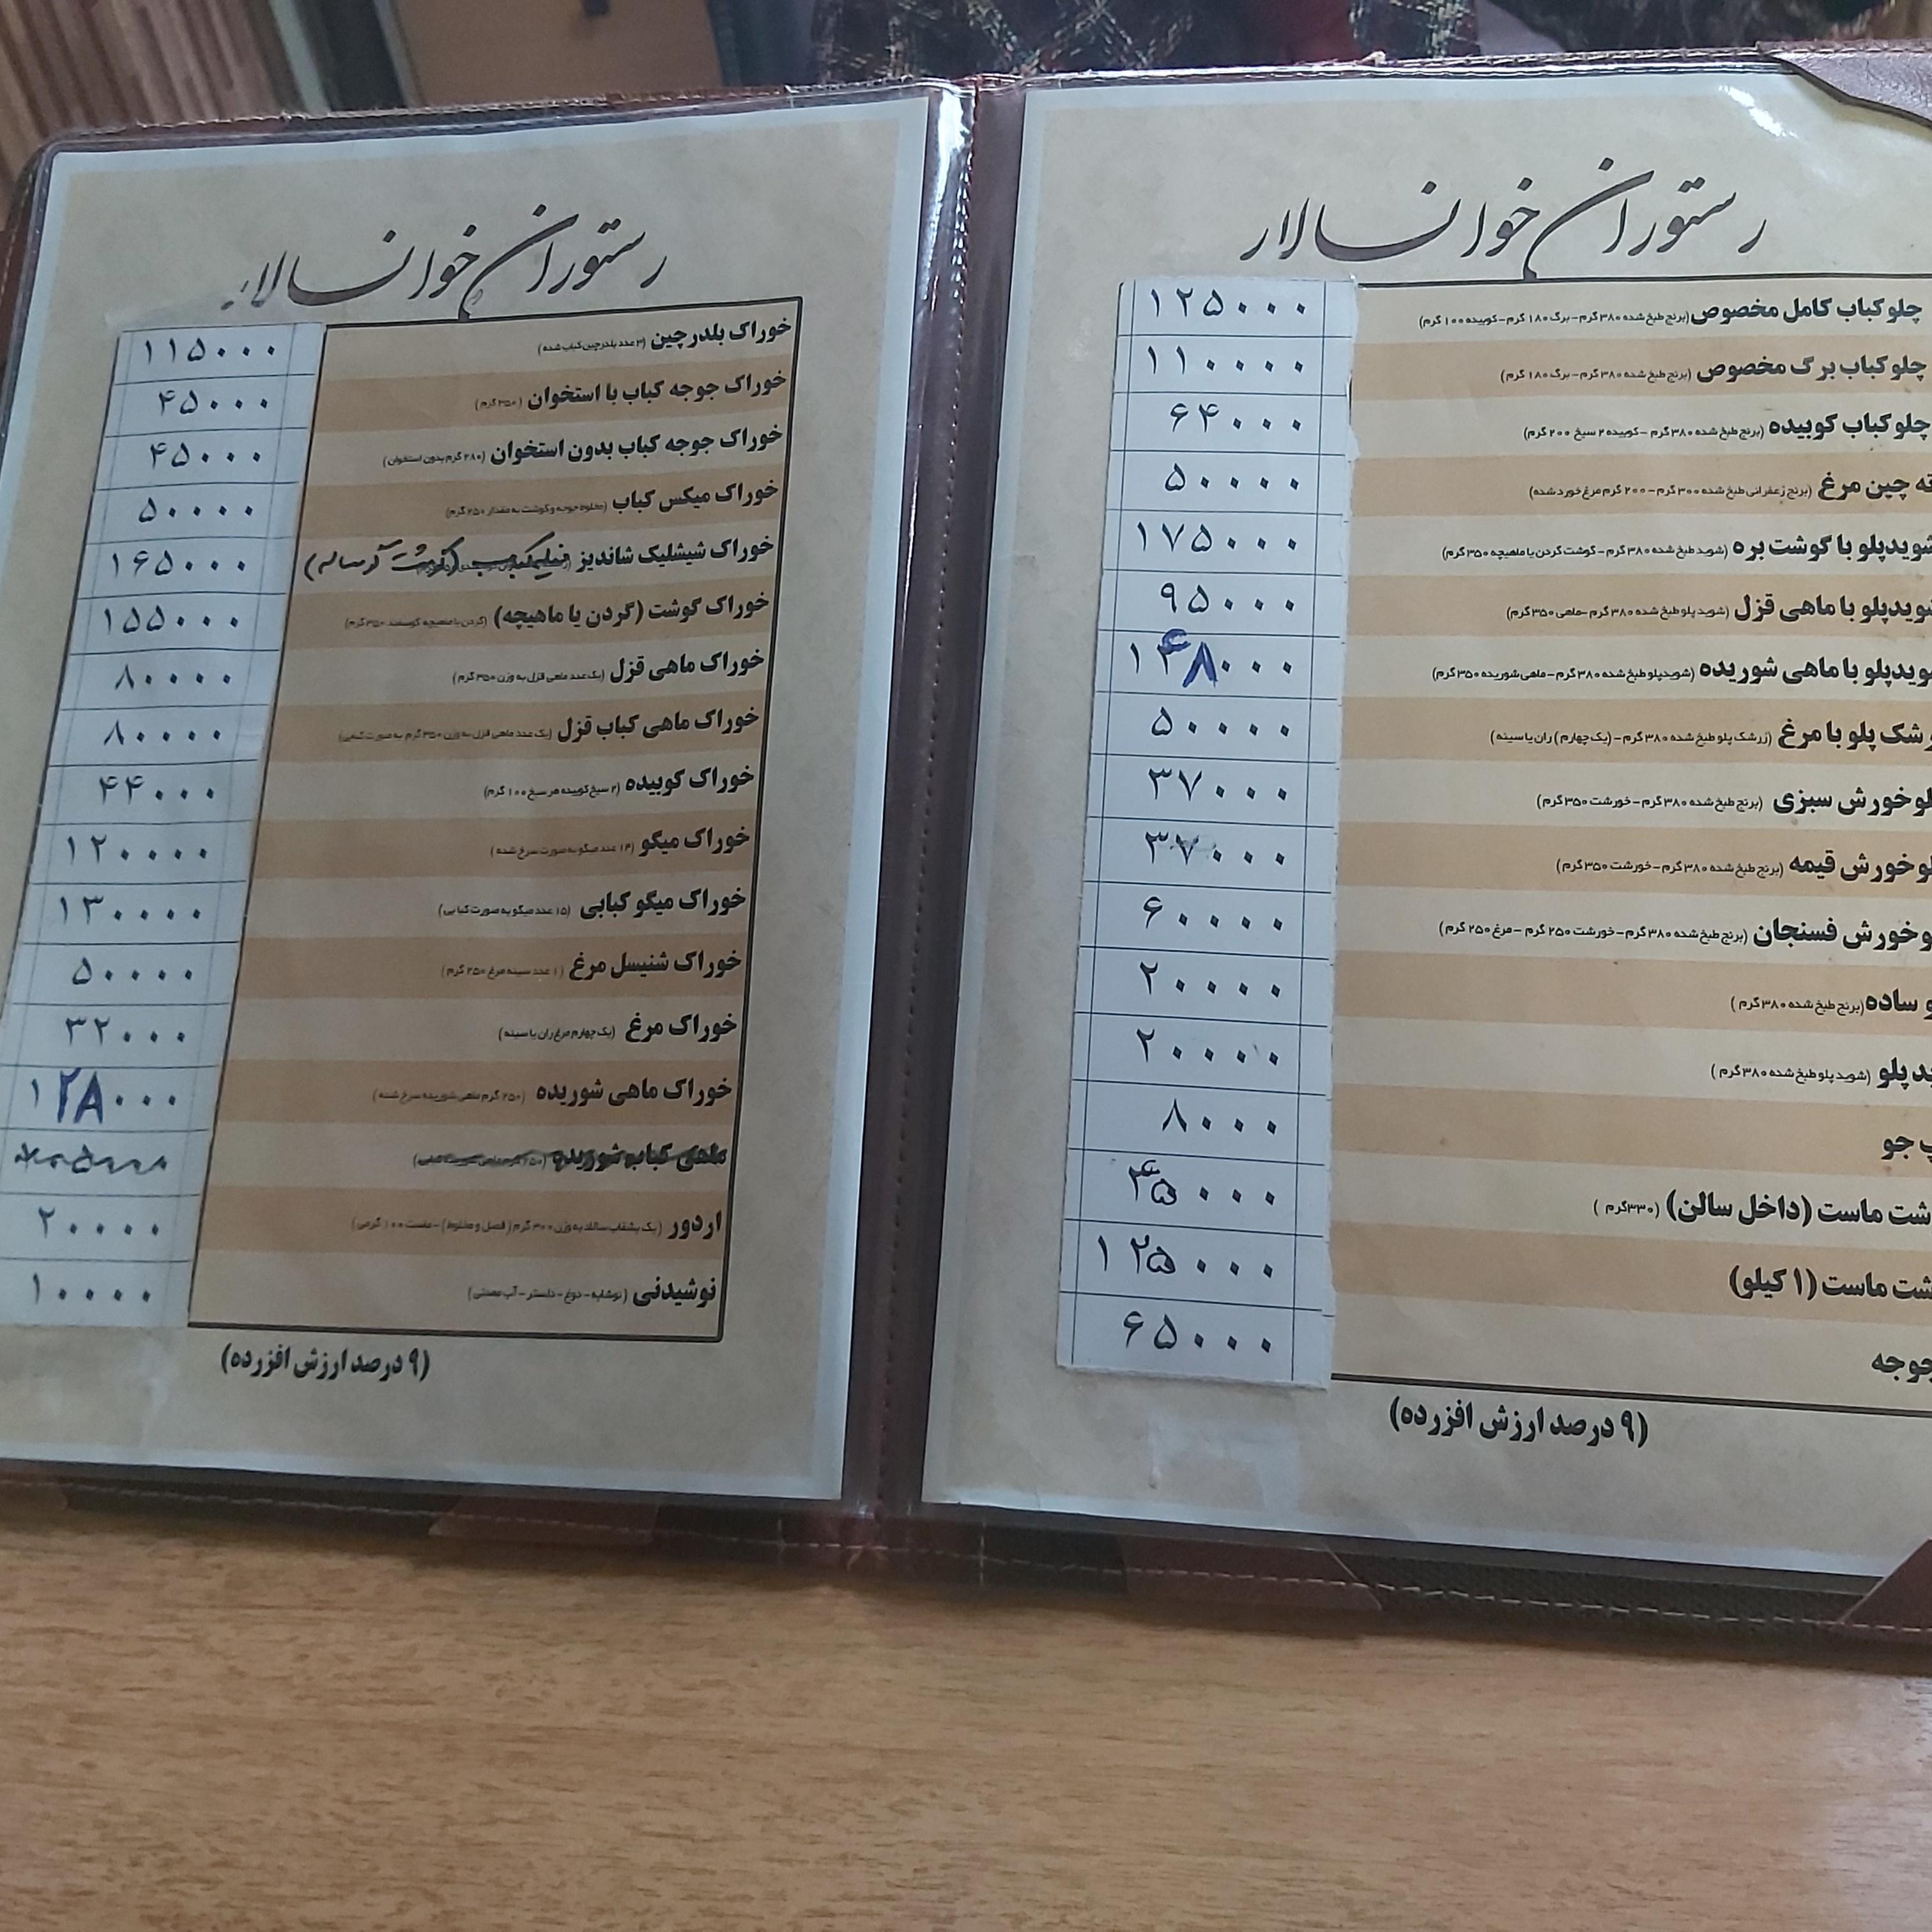 رستوران خوانسالار
چلو کباب کامل مخصوص (برنج طبخ شده ۳۸۰ گرم - برگ ۱۸۰ گرم - کوبیده ۱۰۰ گرم) ۱۲۵۰۰۰
چلو کباب برگ مخصوص (برنج طبخ شده ۳۸۰ گرم - برگ ۱۸۰ گرم) ۱۱۰۰۰۰
چلو کباب کوبیده (برنج طبخ شده ۳۸۰ گرم - کوبیده ۲ سیخ ۲۰۰ گرم) ۶۴۰۰۰
ته چین مرغ (برنج زعفرانی طبخ شده ۳۰۰ گرم - ۲۰۰ گرم مرغ خورد شده) ۵۰۰۰۰
شویدپلو با گوشت بره (شوید طبخ شده ۳۸۰ گرم - گوشت گردن یا ماهیچه ۳۵۰ گرم) ۱۷۵۰۰۰
شویدپلو با ماهی قزل (شوید پلو طبخ شده ۳۸۰ گرم - ماهی ۳۵۰ گرم) ۹۵۰۰۰
ویدپلو با ماهی شوریده (شویدپلو طبخ شده ۳۸۰ گرم - ماهی شوریده ۳۵۰ گرم)
رشک پلو با مرغ (زرشک پلو طبخ شده ۳۸۰ گرم - (یک چهارم) ران یا سینه) ۵۰۰۰۰
لو خورش سبزی (برنج طبخ شده ۳۸۰ گرم - خورشت ۳۵۰ گرم) ۳۷۰۰۰
لو خورش قیمه (برنج طبخ شده ۳۸۰ گرم - خورشت ۳۵۰ گرم) ۳۷۰۰۰
و خورش فسنجان (برنج طبخ شده ۳۸۰ گرم - خورشت ۲۵۰ گرم - مرغ ۲۵۰ گرم) ۶۰۰۰۰
و ساده (برنج طبخ شده ۳۸۰ گرم) ۲۰۰۰۰
ید پلو (شوید پلو طبخ شده ۳۸۰ گرم) ۲۰۰۰۰
پ جو ۸۰۰۰
شت ماست (داخل سالن) (۳۳۰ گرم)
شت ماست (۱ کیلو) ۱۲۵۰۰۰
جوجه ۶۵۰۰۰
(۹ درصد ارزش افزرده)
رستوران خوانسالار
خوراک بلدرچین (۳ عدد بلدرچین کباب شده) ۱۱۵۰۰۰
خوراک جوجه کباب با استخوان (۳۵۰ گرم) ۴۵۰۰۰
خوراک جوجه کباب بدون استخوان (۲۸۰ گرم بدون استخوان) ۴۵۰۰۰
خوراک میکس کباب (مخلوط جوجه و گوشت به مقدار ۲۵۰ گرم) ۵۰۰۰۰
خوراک شیشلیک شاندیز ۱۶۵۰۰۰
خوراک گوشت (گردن یا ماهیچه) (گردن یا ماهیچه گوسفند ۳۵۰ گرم) ۱۵۵۰۰۰
خوراک ماهی قزل (یک عدد ماهی قزل به وزن ۳۵۰ گرم) ۸۰۰۰۰
خوراک ماهی کباب قزل (یک عدد ماهی قزل به وزن ۳۵۰ گرم به صورت کبابی) ۸۰۰۰۰
خوراک کوبیده (۲ سیخ کوبیده هر سیخ ۱۰۰ گرم) ۴۴۰۰۰
خوراک میگو (۱۴ عدد میگو به صورت سرخ شده) ۱۲۰۰۰۰
خوراک میگو کبابی (۱۵ عدد میگو به صورت کبابی) ۱۳۰۰۰۰
خوراک شنیسل مرغ (۱ عدد سینه مرغ ۲۵۰ گرم) ۵۰۰۰۰
خوراک مرغ (یک چهارم مرغ ران یا سینه) ۳۲۰۰۰
خوراک ماهی شوریده (۲۵۰ گرم ماهی شوریده سرخ شده) ۱۲۸۰۰۰
ماهی کباب شوریده
اردور (یک بشقاب سالاد به وزن ۳۰۰ گرم (فصل و مخلوط) - ماست ۱۰۰ گرمی) ۲۰۰۰۰
نوشیدنی (نوشابه - دوغ - دلستر - آب معدنی) ۱۰۰۰۰
(۹ درصد ارزش افزرده)